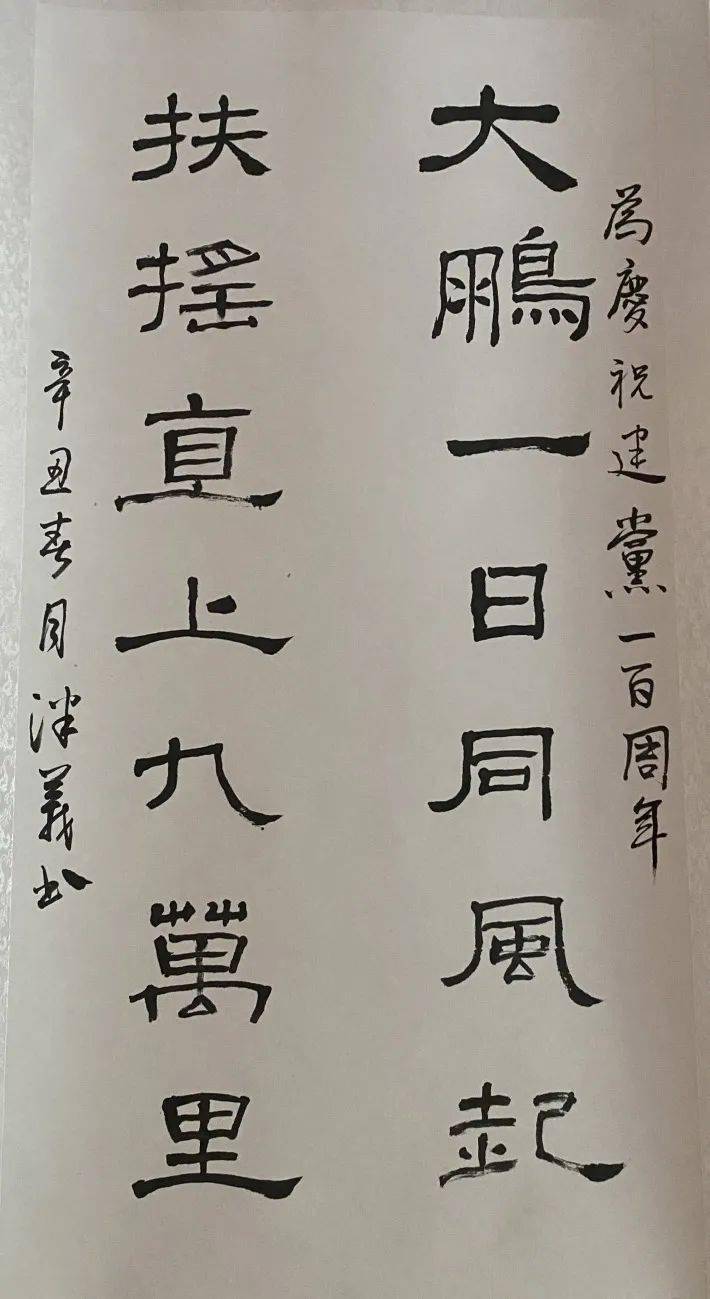 為慶祝建黨一百周年
大鵬一日同風起
扶搖直上九萬里
辛丑春月泮義书